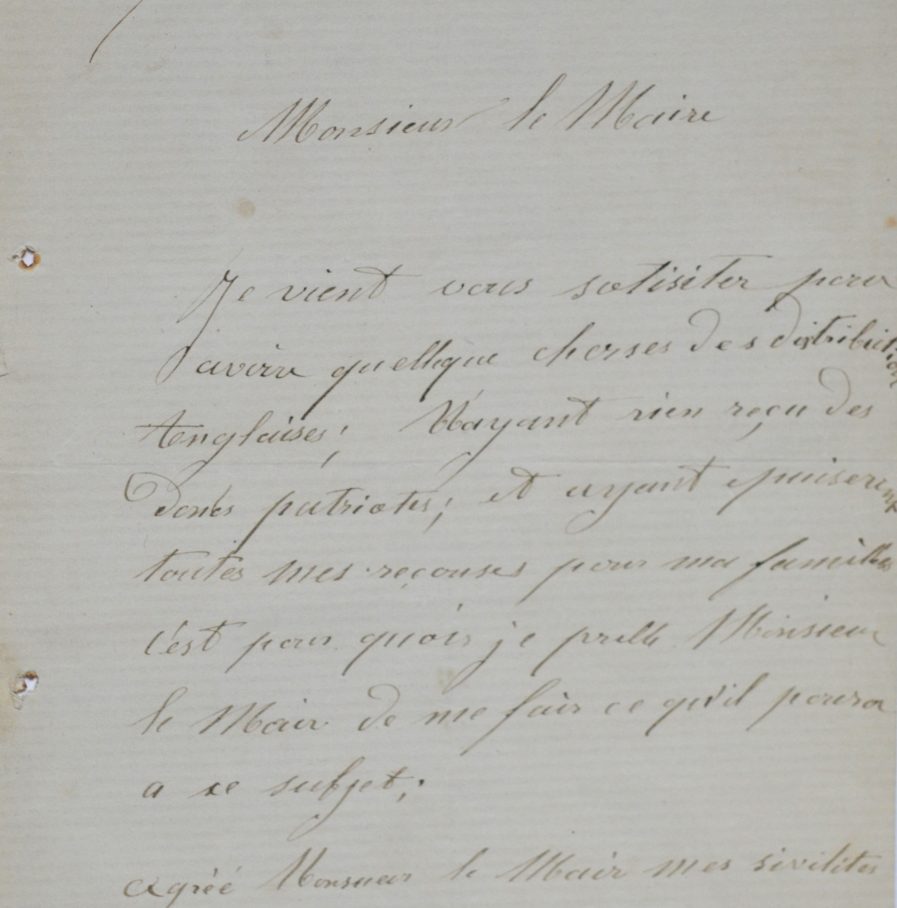 Monsieur le Maire
Je vient vous sotisiter pour
avoire quellque chorses des distribiction
Anglaises; N'ayant rien reçu des
donés patriotes; et ayant epuiser
toutes mes reçouses pour ma familles
c'est pour quois je prelle Monsieur
le Mair de me fair ce qu'il poura
a se subjet;
agréé Monsieur le Mair mes sivilites